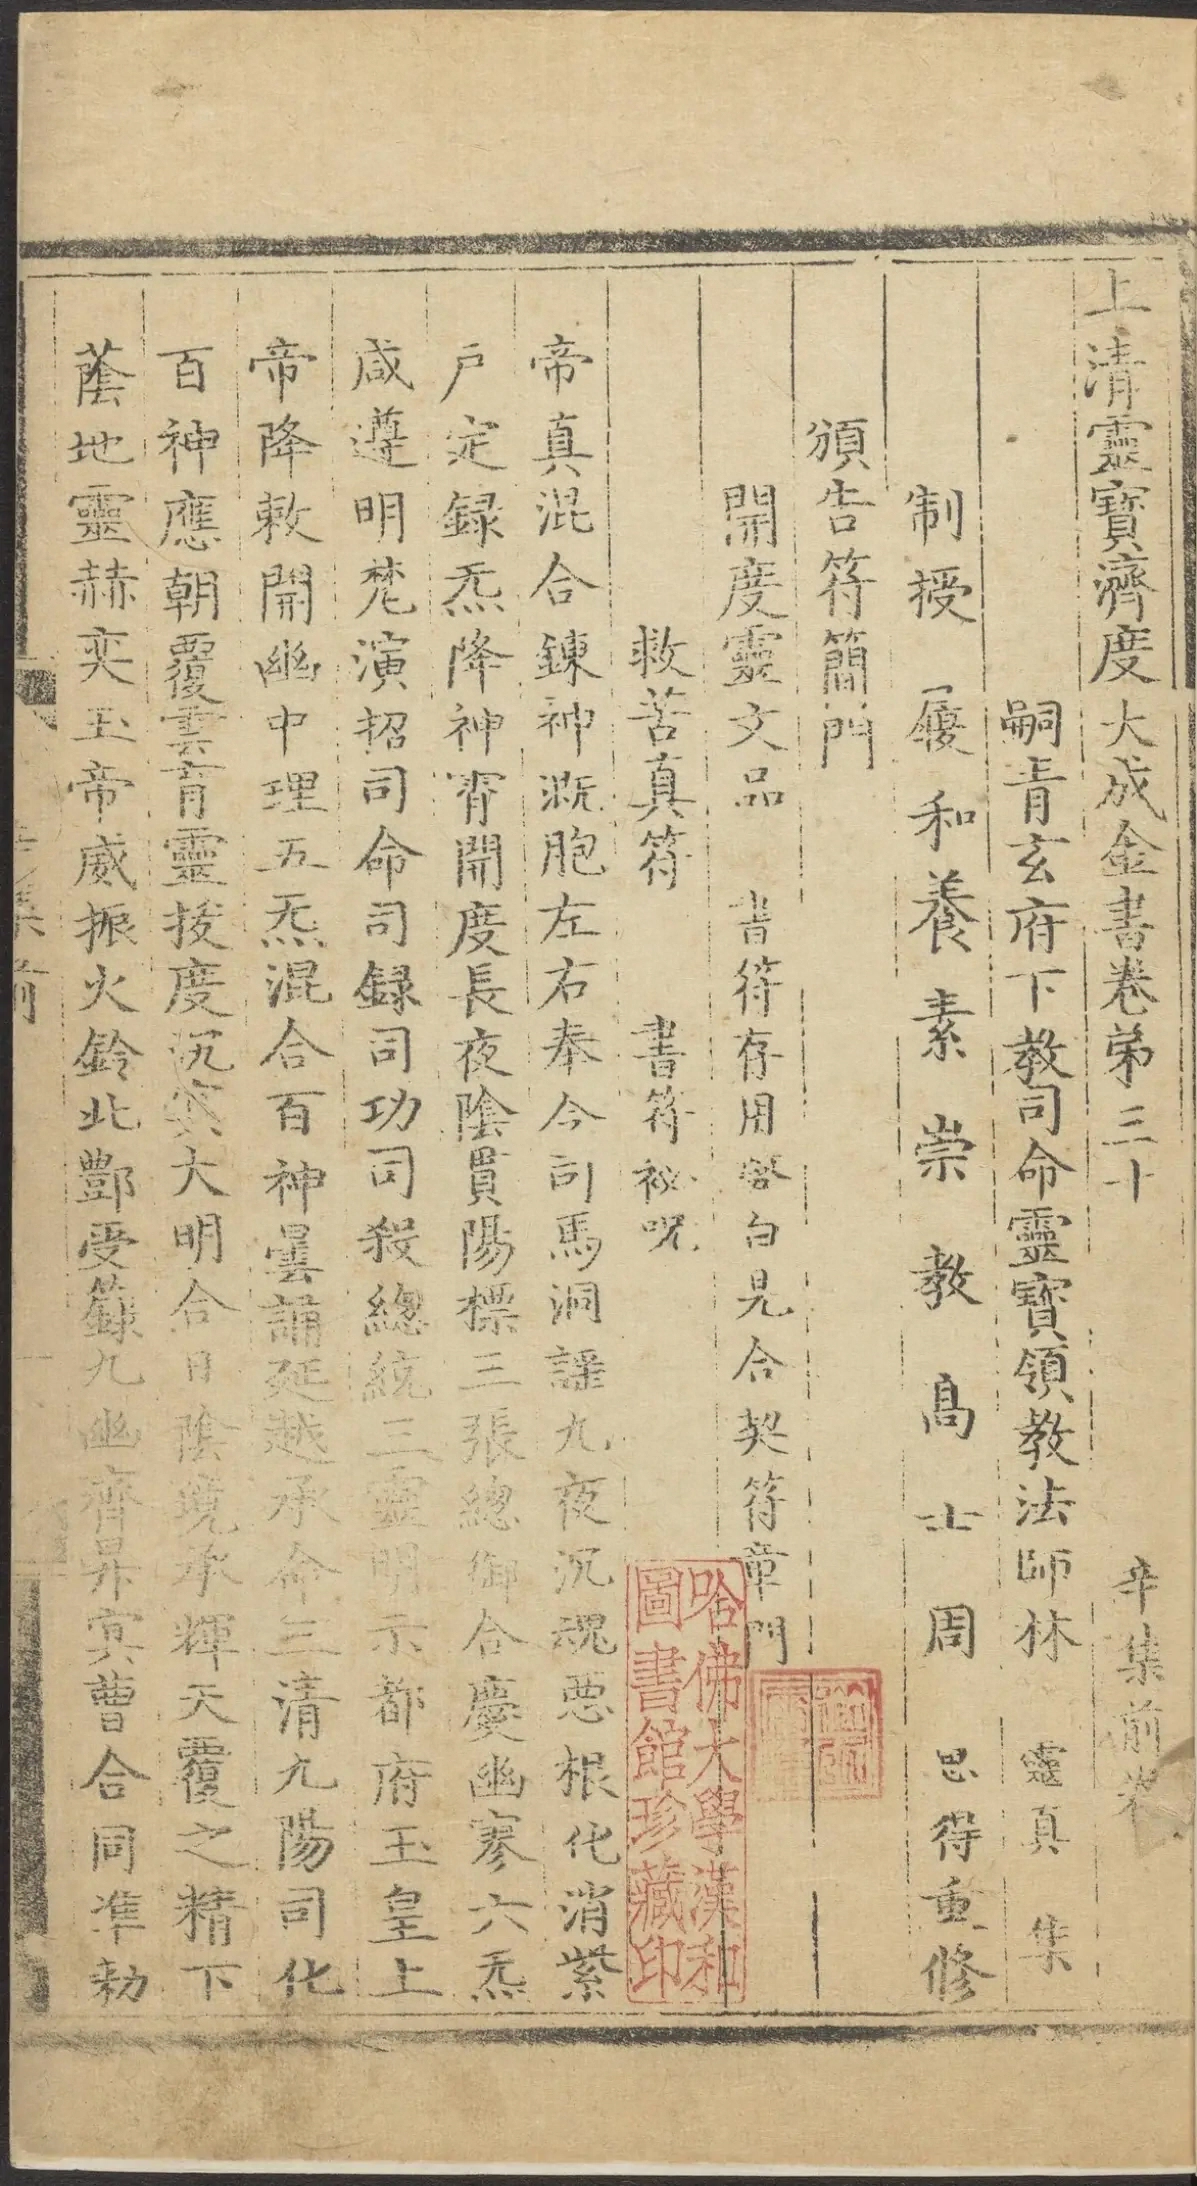 上清靈寶濟度大成金書卷第三十 辛集前卷
嗣青玄府下教司命靈寶領教法師林 靈真 集
制授履和養素崇教高士周 思得重修
頒告符簡門
開度靈文品 書符存用啓白見合契符章門
救苦真符 書符祕咒
帝真混合鍊神溉胞左右奉令司馬洞謡九夜沉魂惡根化消紫
戶定録炁降神霄開度長夜陰貫陽標三張總御合慶幽寥六炁
咸遵明梵演招司命司録司功司殺總統三靈明示都府玉皇上
帝降敕開幽中理五炁混合百神曇誦延越承命三清九陽司化
百神應朝覆雲育靈拔度沉冥大明合日陰境承輝天覆之精下
蔭地靈赫奕玉帝威振火鈴北酆受籙九幽齊昇冥曹合同准勅
哈佛大學漢和
圖書館珍藏印